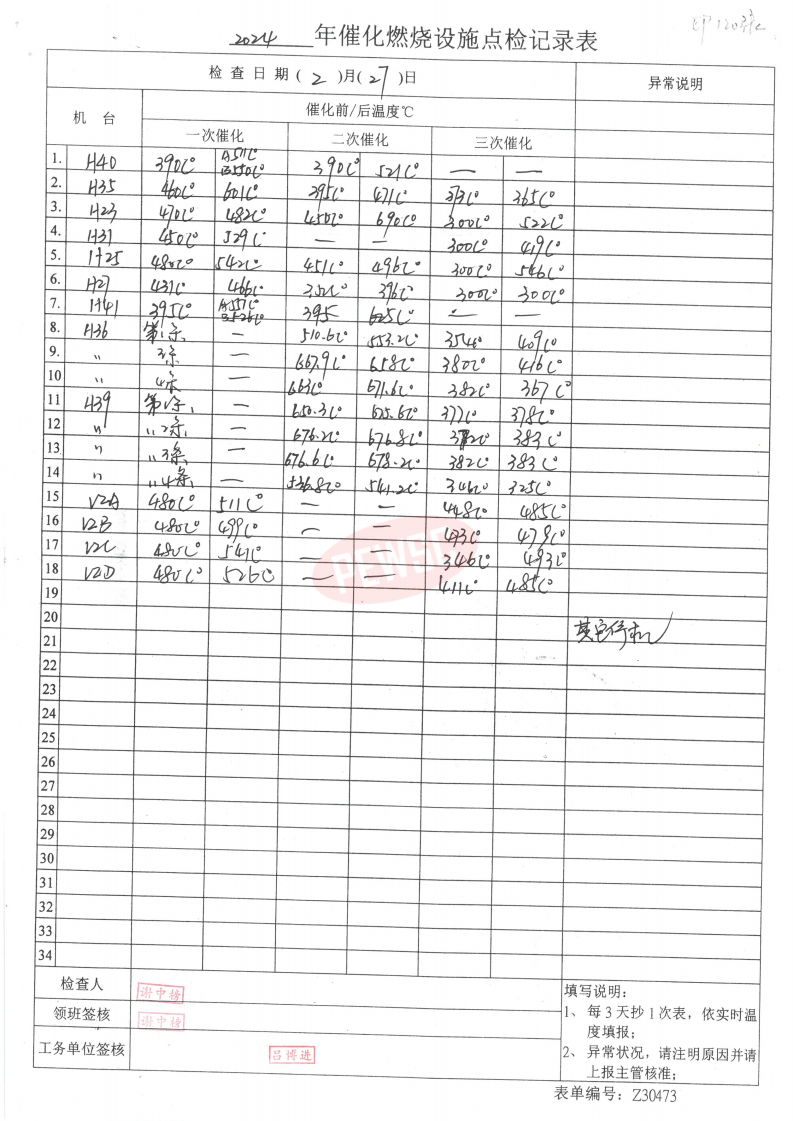 2024 年催化燃烧设施点检记录表
检查日期(2)月(27)日 异常说明
机台 催化前/后温度℃
一次催化 二次催化 三次催化
1. H40 390C° A511C° B550C° 390C° 521C° — —
2. H35 460C° 601C° 395C° 471C° 373C° 365C°
3. H23 470C° 482C° 450C° 690C° 300C° 522C°
4. H31 450C° 529C — — 300C° 419C°
5. H25 480C° 542C° 451C° 496C° 300C° 546C°
6. H27 431C° 466C° 352C° 396C° 300C° 300C°
7. H41 395C° A557C° B526C° 395 625C° — —
8. H36 第1条 — 510.6C° 553.2C° 354C° 409C°
9. 〃 3条 — 667.9C° 658C° 380C° 416C°
10 〃 4条 — 663C° 671.6C° 382C° 367C°
11 H39 第1条 — 650.3C° 625.6C° 377C° 378C°
12 〃 〃2条 — 676.2C° 676.8C° 372C° 383C°
13 〃 〃3条 — 676.6C° 678.2C° 382C° 383C°
14 〃 〃4条 — 536.8C° 541.2C° 346C° 325C°
15 V2A 480C° 511C° — — 448C° 485C°
16 V2B 480C° 499C° — — 473C° 479C°
17 V2C 480C° 541C° — — 346C° 493C°
18 V2D 480C° 526C° — — 411C° 485C°
PEWS
19
20 其它停机
21
22
23
24
25
26
27
28
29
30
31
32
33
34
检查人 谢中榜
领班签核 谢中榜
工务单位签核 吕博进
填写说明：
1、每3天抄1次表，依实时温
度填报；
2、异常状况，请注明原因并请
上报主管核准；
表单编号：Z30473